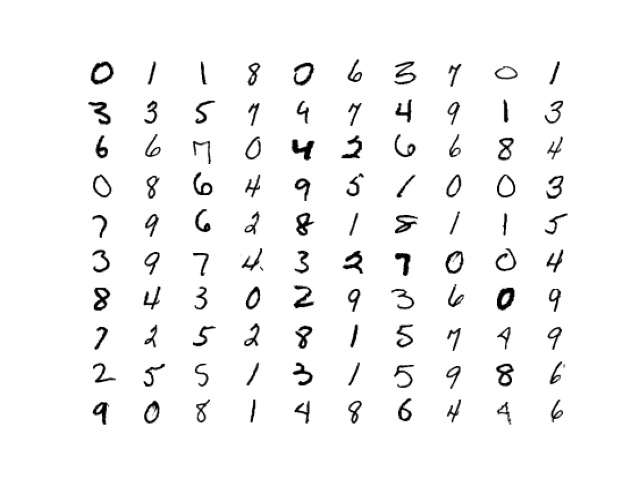 0 1 1 8 0 6 3 7 0 1
3 3 5 7 9 7 4 9 1 3
6 6 7 0 4 2 6 6 8 4
0 8 6 4 9 5 1 0 0 3
7 9 6 2 8 1 8 1 1 5
3 9 7 4 3 2 7 0 0 4
8 4 3 0 2 9 3 6 0 9
7 2 5 2 8 1 5 7 4 9
2 5 5 1 3 1 5 9 8 6
9 0 8 1 4 8 6 4 4 6